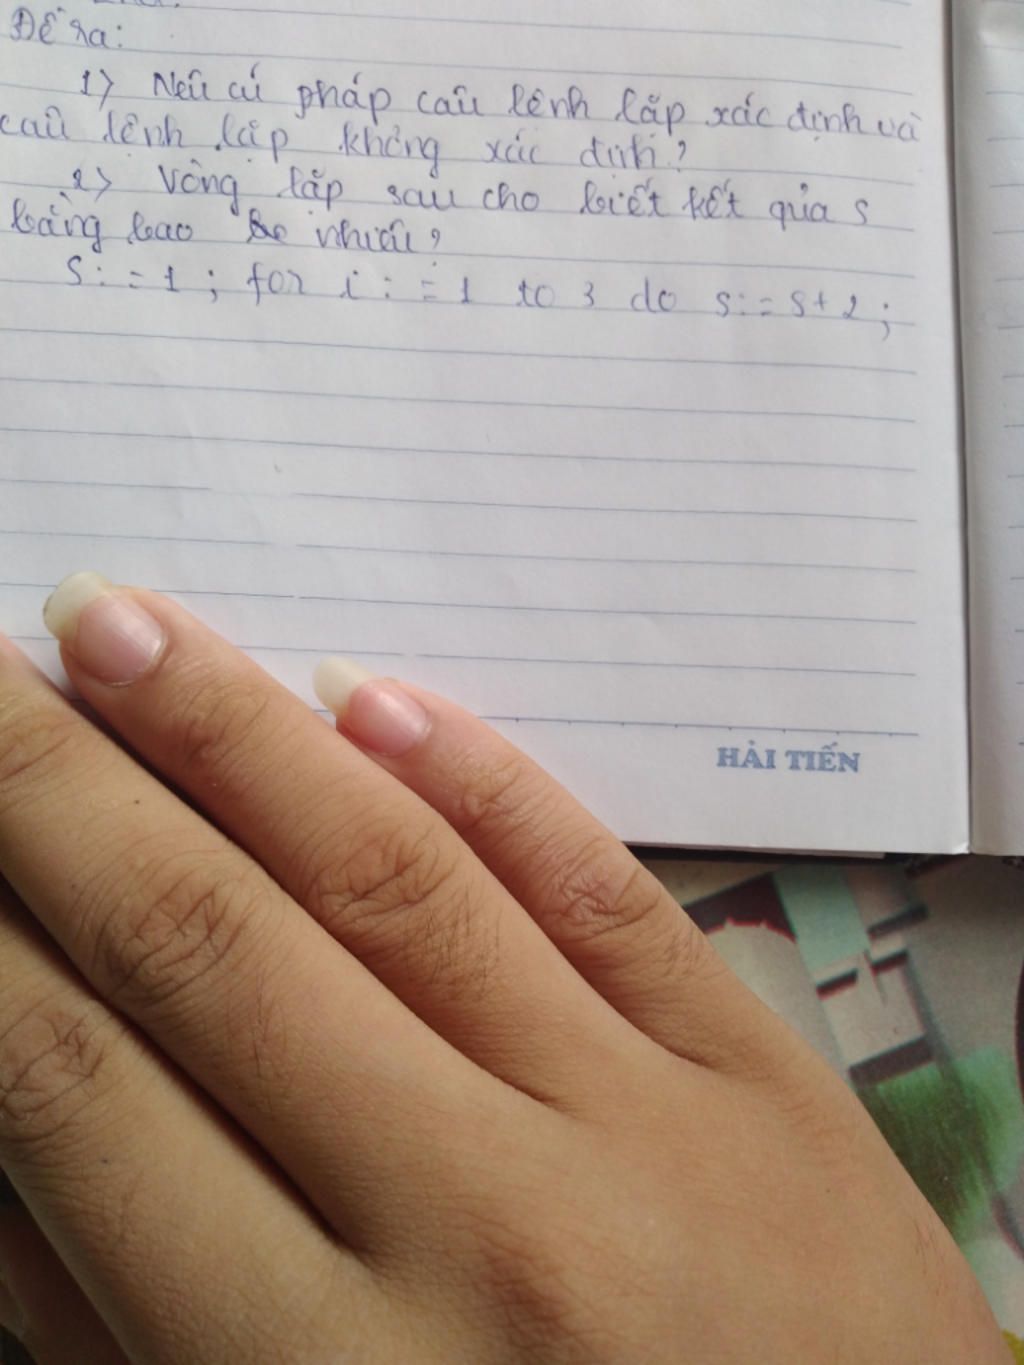 Đề ra:
1) Nêu cú pháp câu lệnh lặp xác định và
câu lệnh lặp không xác định?
2) Vòng lặp sau cho biết kết qủa s
bằng bao nhiêu?
S:=1; for i:=1 to 3 do s:=s+2;
HẢI TIẾN